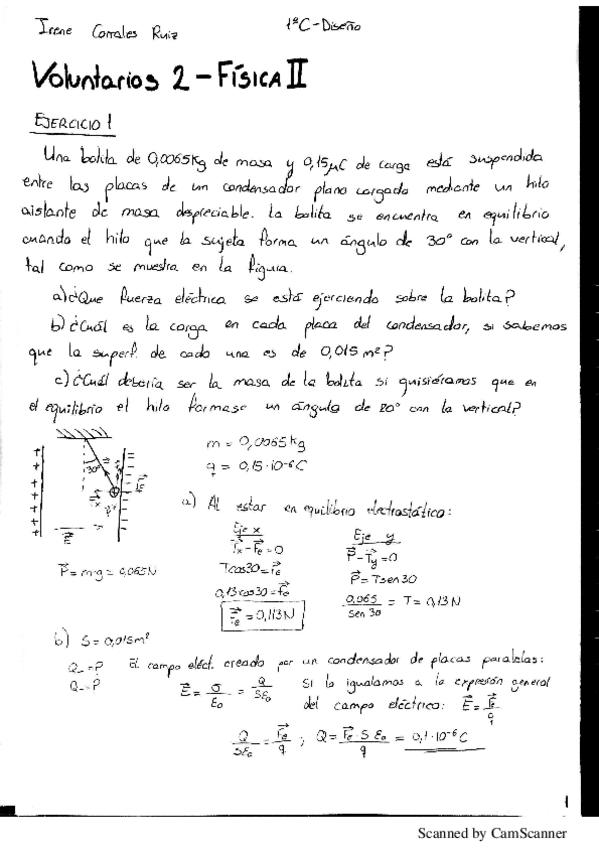 Irene Corrales Ruiz
1ºC-Diseño
Voluntarios 2 - FÍSICA II
EJERCICIO 1
Una bolita de 0,0065kg de masa y 0,15μC de carga está suspendida
entre las placas de un condensador plano cargado mediante un hilo
aislante de masa despreciable. La bolita se encuentra en equilibrio
cuando el hilo que la sujeta forma un ángulo de 30º con la vertical,
tal como se muestra en la figura.
a) ¿Que fuerza eléctrica se está ejerciendo sobre la bolita?
b) ¿Cuál es la carga en cada placa del condensador, si sabemos
que la superf. de cada una es de 0,015 m²?
c) ¿Cuál debería ser la masa de la bolita si quisiéramos que en
el equilibrio el hilo formase un ángulo de 20º con la vertical?
m = 0,0065 kg
q = 0,15·10⁻⁶C
30º
E
a) Al estar en equilibrio electrostático:
Eje x
Eje y
Tx - Fe = 0
P - Ty = 0
P = m·g = 0,065N
Tcos30 = Fe
P = Tsen30
0,13cos30 = Fe
0,065 / sen 30 = T = 0,13N
Fe = 0,113N
b) S = 0,015m²
Q₊ = ?
Q₋ = ?
El campo eléct. creado por un condensador de placas paralelas:
E = σ/ε₀ = Q/Sε₀
Si lo igualamos a la expresión general
del campo eléctrico: E = Fe/q
Q/Sε₀ = Fe/q ; Q = Fe·S·ε₀/q = 0,1·10⁻⁶C
1
Scanned by CamScanner